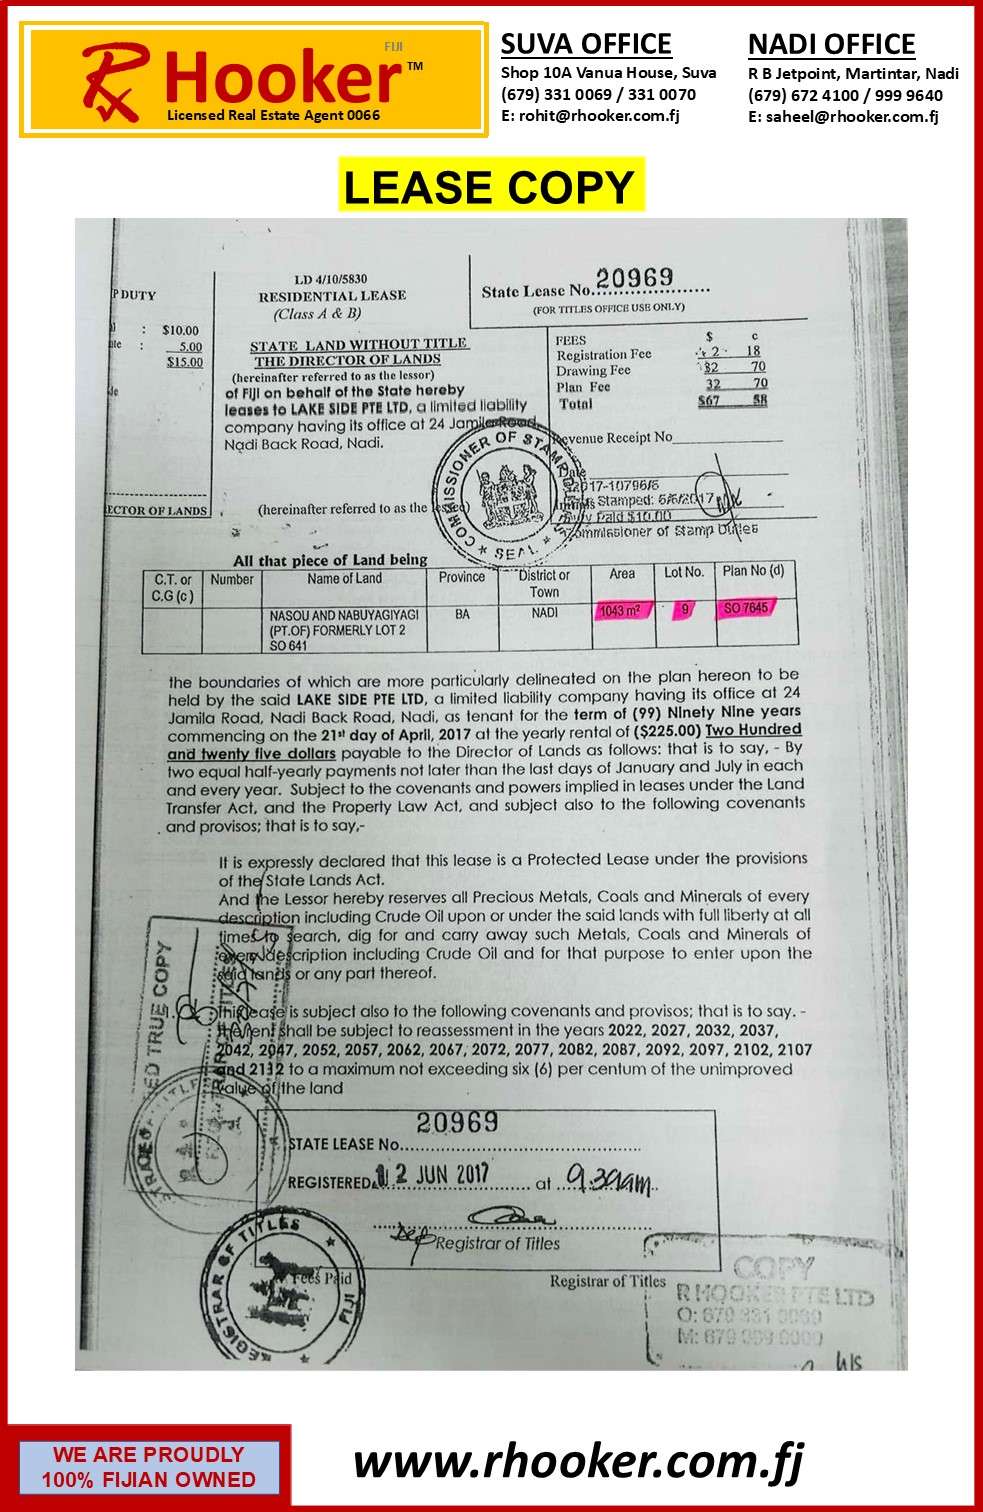 FIJI
Rx Hooker™
Licensed Real Estate Agent 0066
SUVA OFFICE
Shop 10A Vanua House, Suva
(679) 331 0069 / 331 0070
E: rohit@rhooker.com.fj
NADI OFFICE
R B Jetpoint, Martintar, Nadi
(679) 672 4100 / 999 9640
E: saheel@rhooker.com.fj
LEASE COPY
P DUTY
: $10.00
: 5.00
$15.00
ECTOR OF LANDS
LD 4/10/5830
RESIDENTIAL LEASE
(Class A & B)
STATE LAND WITHOUT TITLE
THE DIRECTOR OF LANDS
(hereinafter referred to as the lessor)
of Fiji on behalf of the State hereby
leases to LAKE SIDE PTE LTD, a limited liability
company having its office at 24 Jamila Road,
Nadi Back Road, Nadi.
(hereinafter referred to as the lessee)
State Lease No. 20969
(FOR TITLES OFFICE USE ONLY)
FEES $ c
Registration Fee 2 18
Drawing Fee 32 70
Plan Fee 32 70
Total $67 58
Revenue Receipt No
Date
2017-10796/6
Stamped: 5/6/2017
Duty Paid $10.00
Commissioner of Stamp Duties
COMMISSIONER OF STAMP
SEAL
All that piece of Land being
C.T. or C.G (c) Number Name of Land Province District or Town Area Lot No. Plan No (d)
NASOU AND NABUYAGIYAGI (PT.OF) FORMERLY LOT 2 SO 641 BA NADI 1043 m² 9 SO 7645
the boundaries of which are more particularly delineated on the plan hereon to be
held by the said LAKE SIDE PTE LTD, a limited liability company having its office at 24
Jamila Road, Nadi Back Road, Nadi, as tenant for the term of (99) Ninety Nine years
commencing on the 21st day of April, 2017 at the yearly rental of ($225.00) Two Hundred
and twenty five dollars payable to the Director of Lands as follows: that is to say, - By
two equal half-yearly payments not later than the last days of January and July in each
and every year. Subject to the covenants and powers implied in leases under the Land
Transfer Act, and the Property Law Act, and subject also to the following covenants
and provisos; that is to say,-
It is expressly declared that this lease is a Protected Lease under the provisions
of the State Lands Act.
And the Lessor hereby reserves all Precious Metals, Coals and Minerals of every
description including Crude Oil upon or under the said lands with full liberty at all
times to search, dig for and carry away such Metals, Coals and Minerals of
every description including Crude Oil and for that purpose to enter upon the
said lands or any part thereof.
1. This lease is subject also to the following covenants and provisos; that is to say. -
The rent shall be subject to reassessment in the years 2022, 2027, 2032, 2037,
2042, 2047, 2052, 2057, 2062, 2067, 2072, 2077, 2082, 2087, 2092, 2097, 2102, 2107
and 2112 to a maximum not exceeding six (6) per centum of the unimproved
value of the land
ED TRUE COPY
20969
STATE LEASE No.
REGISTERED 12 JUN 2017 at 9.30am
Dep Registrar of Titles
Fees Paid
Registrar of Titles
REGISTRAR OF TITLES
FIJI
COPY
R HOOKER PTE LTD
O: 679 331 0069
WE ARE PROUDLY
100% FIJIAN OWNED
www.rhooker.com.fj